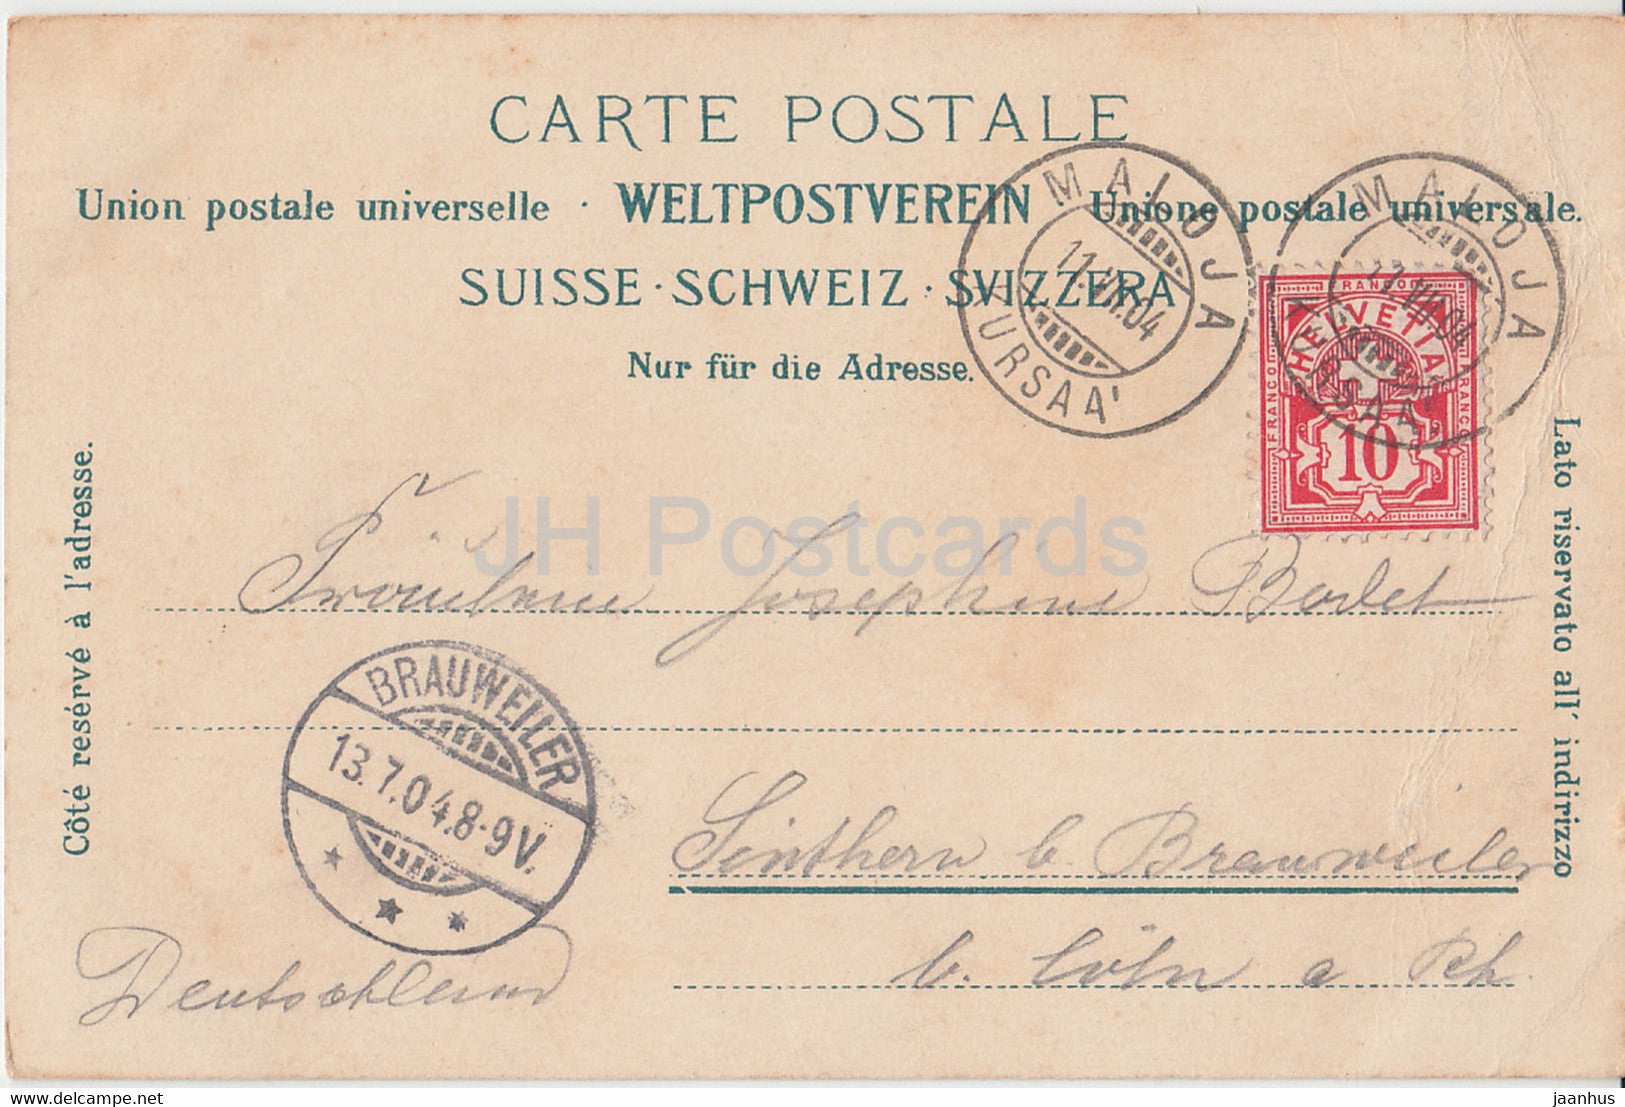 CARTE POSTALE
Union postale universelle · WELTPOSTVEREIN Unione postale universale.
SUISSE · SCHWEIZ · SVIZZERA
Nur für die Adresse.
MALOJA
11.VII.04
KURSAAL
MALOJA
11.VII.04
KURSAAL
FRANCO
HELVETIA
FRANCO
FRANCO
10
Côté resérvé à l'adresse.
Lato riservato all' indirizzo
JH Postcards
Fräulein Josephine
BRAUWEILER
13.7.04.8-9V.
Sinthern b. Brauweiler
b. Cöln a Rh.
Deutschland
delcampe.net
jaanhus